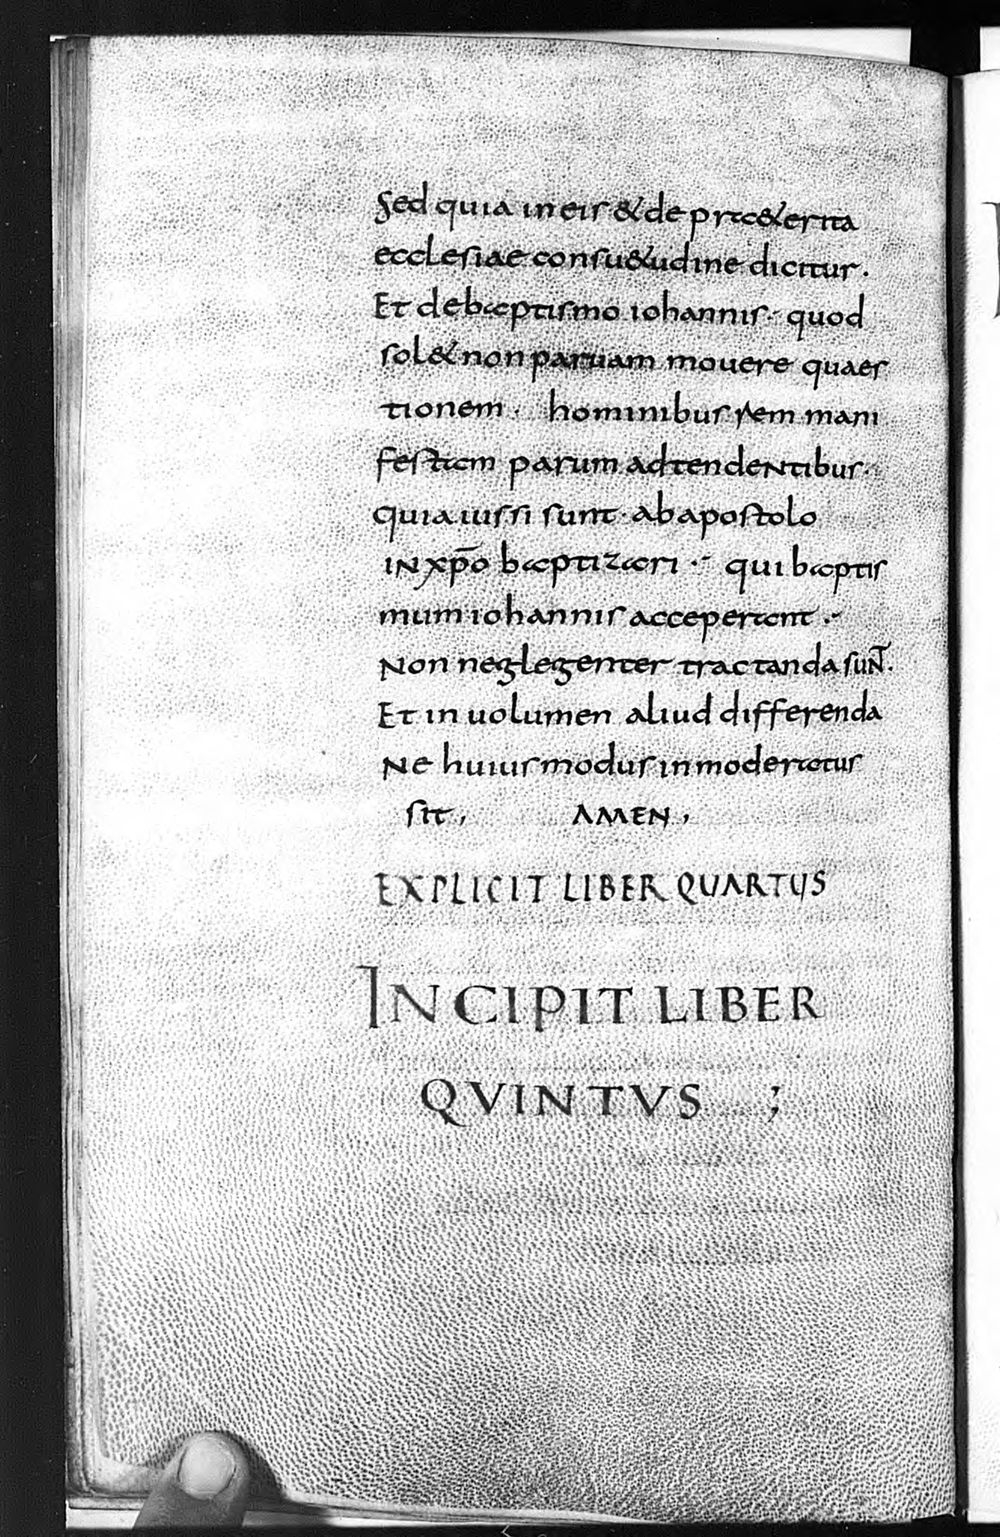 Sed quia in eis & de praet&erita
ecclesiae consu&udine dicitur.
Et de baptismo iohannis. quod
sol& non paruam mouere quaes
tionem. hominibus rem mani
festam parum adtendentibus.
quia iussi sunt. ab apostolo
in xp̄o baptizari. qui baptis
mum iohannis acceperant.
Non neglegenter tractanda suN̄.
Et in uolumen aliud differenda
Ne huius modus inmoderatus
sit, AMEN,
EXPLICIT LIBER QUARTUS
INCIPIT LIBER
QVINTVS ;